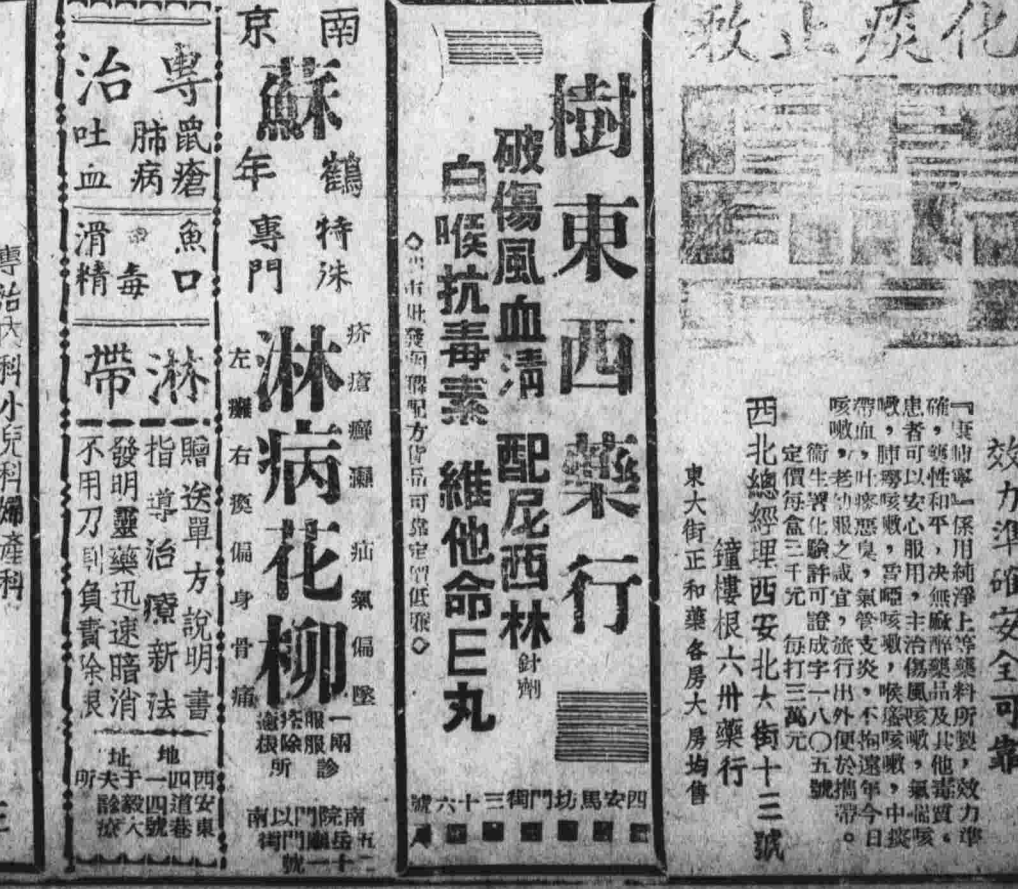 化痰止救
效力準確安全可靠
『康肺寧』係用純淨上等藥料所製，效力準
確，藥性和平，决無麻醉藥品及其他毒質。
患者可以安心服用，主治傷風咳嗽，氣喘咳
嗽，肺癆咳嗽，音啞咳嗽，喉瘙咳嗽，中痰
帶血，吐痰惡臭，氣管支炎，不拘遠年今日
咳嗽，老幼服之咸宜，旅行出外便於攜帶。
衞生署化驗許可證成字一八〇五號
定價每盒三千元 每打三萬元
西北總經理西安北大街十三號
鐘樓根六卅藥行
東大街正和藥各房大房均售
樹東西藥行
破傷風血清 配尼西林針劑
白喉抗毒素 維他命E丸
配方貨品可靠定價低廉
西安馬坊門街三十六號
南京
蘇鶴年
特殊專門
疥瘡癬灦疝氣偏墜
淋病花柳
左癱右瘓偏身骨痛
一兩服診
南院門
五岳廟門
十一號
專治
鼠瘡
肺病
吐血
魚口
毒
滑精
淋帶
贈送單方說明書
指導治療新法
發明靈藥迅速暗消
不用刀割負責除根
地址
西安東四道巷一四號于毅夫大診療所
專治內科小兒科婦產科